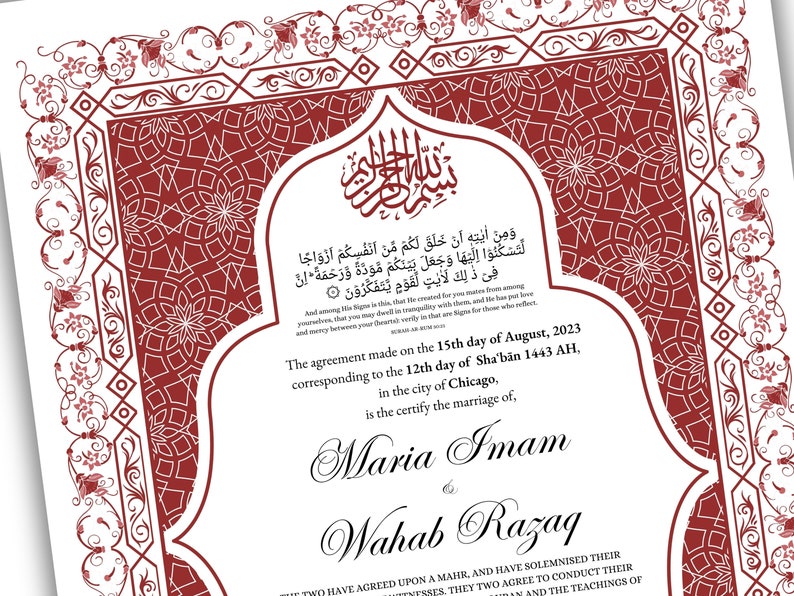 بسم الله الرحمن الرحيم
وَمِنْ اٰيٰتِهٖٓ اَنْ خَلَقَ لَكُمْ مِّنْ اَنْفُسِكُمْ اَزْوَاجًا
لِّتَسْكُنُوْٓا اِلَيْهَا وَجَعَلَ بَيْنَكُمْ مَّوَدَّةً وَّرَحْمَةً ؕ اِنَّ
فِيْ ذٰ لِكَ لَاٰيٰتٍ لِّقَوْمٍ يَّتَفَكَّرُوْنَ
And among His Signs is this, that He created for you mates from among
yourselves, that you may dwell in tranquility with them, and He has put love
and mercy between your (hearts): verily in that are Signs for those who reflect.
SURAH-AR-RUM 30:21
The agreement made on the 15th day of August, 2023
corresponding to the 12th day of Shaʿbān 1443 AH,
in the city of Chicago,
is the certify the marriage of,
Maria Imam
&
Wahab Razaq
THE TWO HAVE AGREED UPON A MAHR, AND HAVE SOLEMNISED THEIR
WITNESSES. THEY TWO AGREE TO CONDUCT THEIR
AND THE TEACHINGS OF